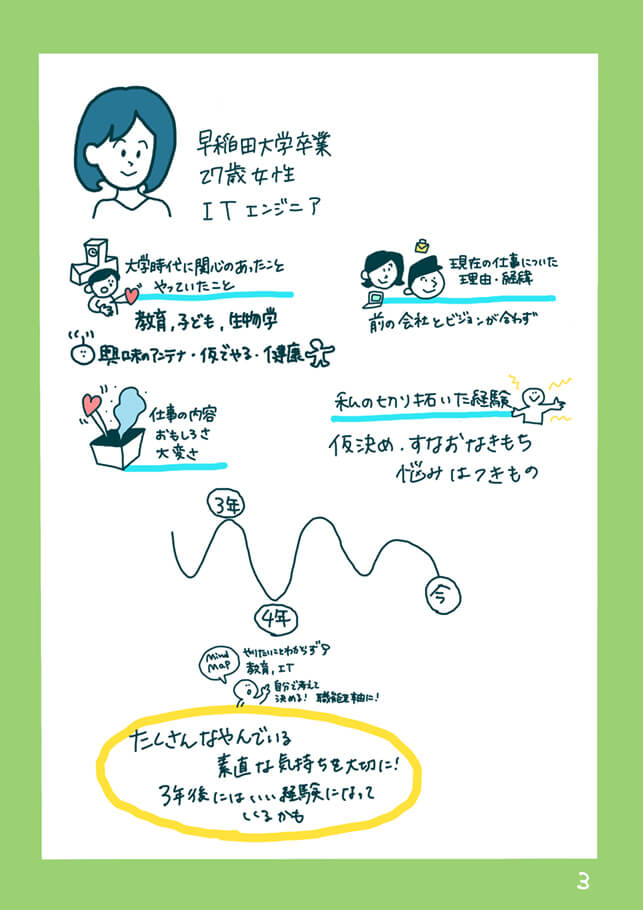 早稲田大学卒業
27歳女性
ITエンジニア
大学時代に関心のあったこと
やっていたこと
教育,子ども,生物学
興味のアンテナ・仮でやる・健康
現在の仕事についた
理由・経緯
前の会社とビジョンが合わず
仕事の内容
おもしろさ
大変さ
私の切り拓いた経験
仮決め.すなおなきもち
悩みはつきもの
3年
4年
今
Mind
MaP
やりたいことわからず?
教育,IT
自分で考えて
決める! 職能を軸に!
たくさんなやんでいる
素直な気持ちを大切に!
3年後にはいい経験になって
いるかも
3